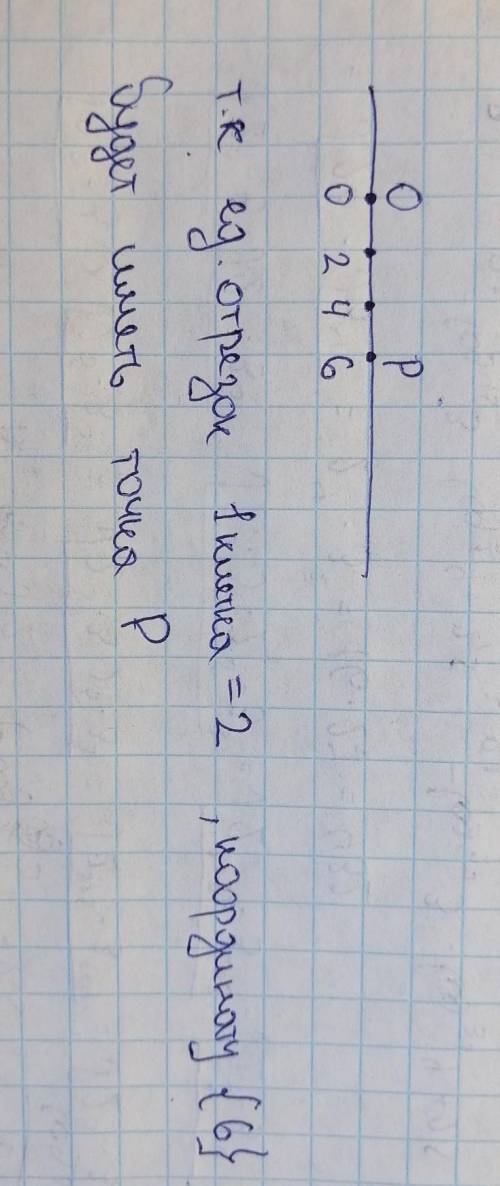 O P
0 2 4 6
т.к ед. отрезок 1 клетка = 2 , координату {6}
будет иметь точка P